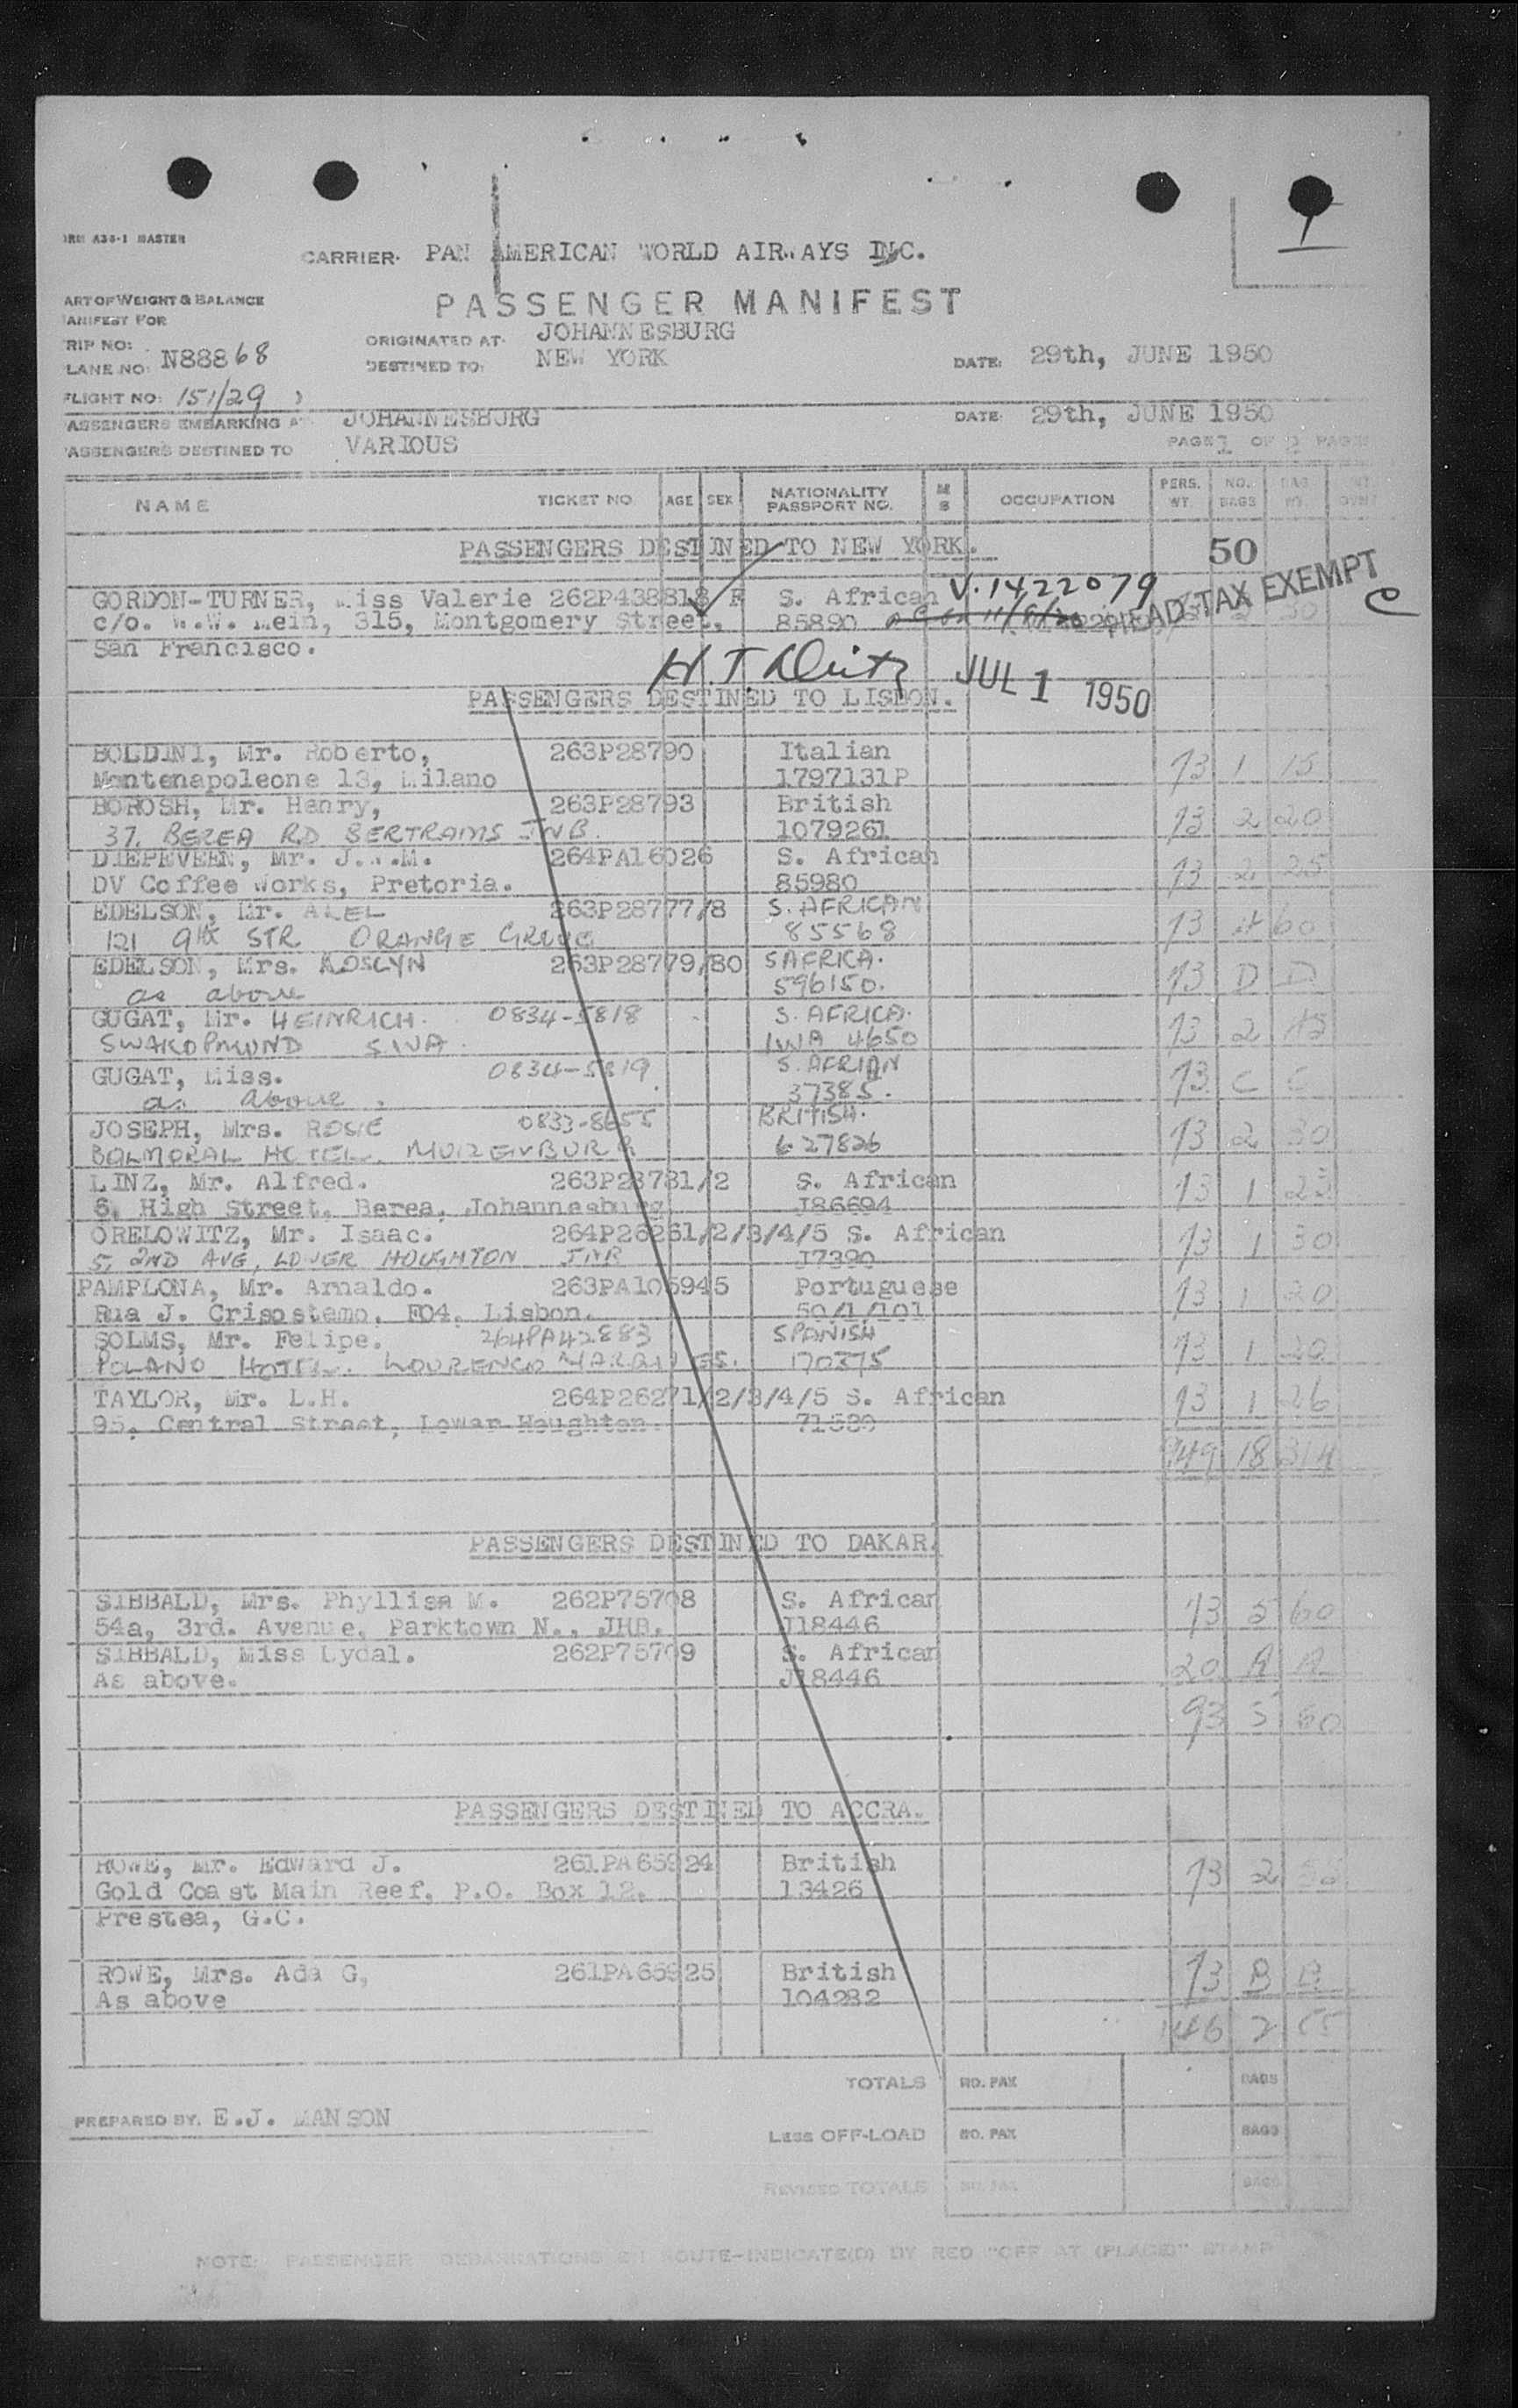 ORM A36-1 MASTER
CARRIER· PAN AMERICAN WORLD AIRWAYS INC.
PASSENGER MANIFEST
ART OF WEIGHT & BALANCE
ANIFEST FOR
RIP NO:
LANE NO: N88868
FLIGHT NO: 151/29
ORIGINATED AT· JOHANNESBURG
DESTINED TO: NEW YORK
DATE: 29th, JUNE 1950
ASSENGERS EMBARKING AT JOHANNESBURG
DATE: 29th, JUNE 1950
ASSENGERS DESTINED TO VARIOUS
PAGE 1 OF PAGES
NAME TICKET NO AGE SEX NATIONALITY PASSPORT NO. M S OCCUPATION PERS. WT. NO. BAGS BAG WT
PASSENGERS DESTINED TO NEW YORK. 50
GORDON-TURNER, Miss Valerie 262P438818 F S. African V.1422079 HEAD TAX EXEMPT
c/o. W.W. Mein, 315, Montgomery Street, 85890 30
San Francisco.
JUL 1 1950
PASSENGERS DESTINED TO LISBON.
BOLDINI, Mr. Roberto, 263P28790 Italian
Montenapoleone 13, Milano 1797131P 73 1 15
BOROSH, Mr. Henry, 263P28793 British
37. BEREA RD BERTRAMS JNB. 1079261 73 2 20
DIEPEVEEN, Mr. J.W.M. 264PA16026 S. African
DV Coffee Works, Pretoria. 85980 73 2 25
EDELSON, Mr. ABEL 263P28777/8 S. AFRICAN
121 9th STR ORANGE GROVE 85568 73 4 60
EDELSON, Mrs. ROSLYN 263P28779/80 S AFRICA.
as above 596150. 73 D D
GUGAT, Mr. HEINRICH. 0834-5818 S. AFRICA.
SWAKOPMUND SWA. 4650 73 2
GUGAT, Miss. 0834-5819 S. AFRIAN
as above. 37385. 73 C C
JOSEPH, Mrs. ROSIE 0833-8655 BRITISH.
BALMORAL HOTEL. MUIZENBURG 627826 73 2 30
LINZ, Mr. Alfred. 263P28781/2 S. African
6, High Street, Berea, Johannesburg J86694 73 1 23
ORELOWITZ, Mr. Isaac. 264P26261/2/3/4/5 S. African
5, 2ND AVE, LOWER HOUGHTON JNB J7390 73 1 30
PAMPLONA, Mr. Arnaldo. 263PA106945 Portuguese
Rua J. Crisostemo, F04, Lisbon. 50/1/101 73 1 20
SOLMS, Mr. Felipe. 264PA42883 SPANISH
POLANO HOTEL. LOURENCO MARQUES. 170375 73 1 20
TAYLOR, Mr. L.H. 264P26271/2/3/4/5 S. African
95, Central Street, Lower Houghton. 71530 73 1 26
949 18 314
PASSENGERS DESTINED TO DAKAR.
SIBBALD, Mrs. Phyllisa M. 262P75708 S. African
54a, 3rd. Avenue, Parktown N., JHB. J18446 73 5 60
SIBBALD, Miss Lydal. 262P75709 S. African
As above. J18446 20 A A
93 5 60
PASSENGERS DESTINED TO ACCRA.
ROWE, Mr. Edward J. 261PA65924 British
Gold Coast Main Reef, P.O. Box 12, 13426 73 2 55
Prestea, G.C.
ROWE, Mrs. Ada G, 261PA65925 British
As above 104282 73 B B
146 2 55
TOTALS NO. PAX BAGS
PREPARED BY. E.J. MANSON
LESS OFF-LOAD NO. PAX BAGS
REVISED TOTALS NO. PAX BAGS
NOTE: PASSENGER DEBARKATIONS EN ROUTE-INDICATE(D) BY RED "OFF AT (PLACE)" STAMP